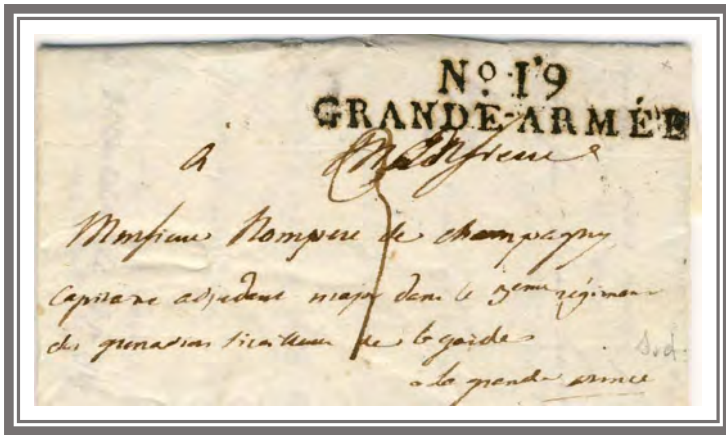 Nº 19
GRANDE-ARMÉE
a Monsieur
Monsieur Nompere de champagny
capitaine adjudant major dans le 3eme régiment
des grenadiers tirailleurs de la garde
a la grande armee